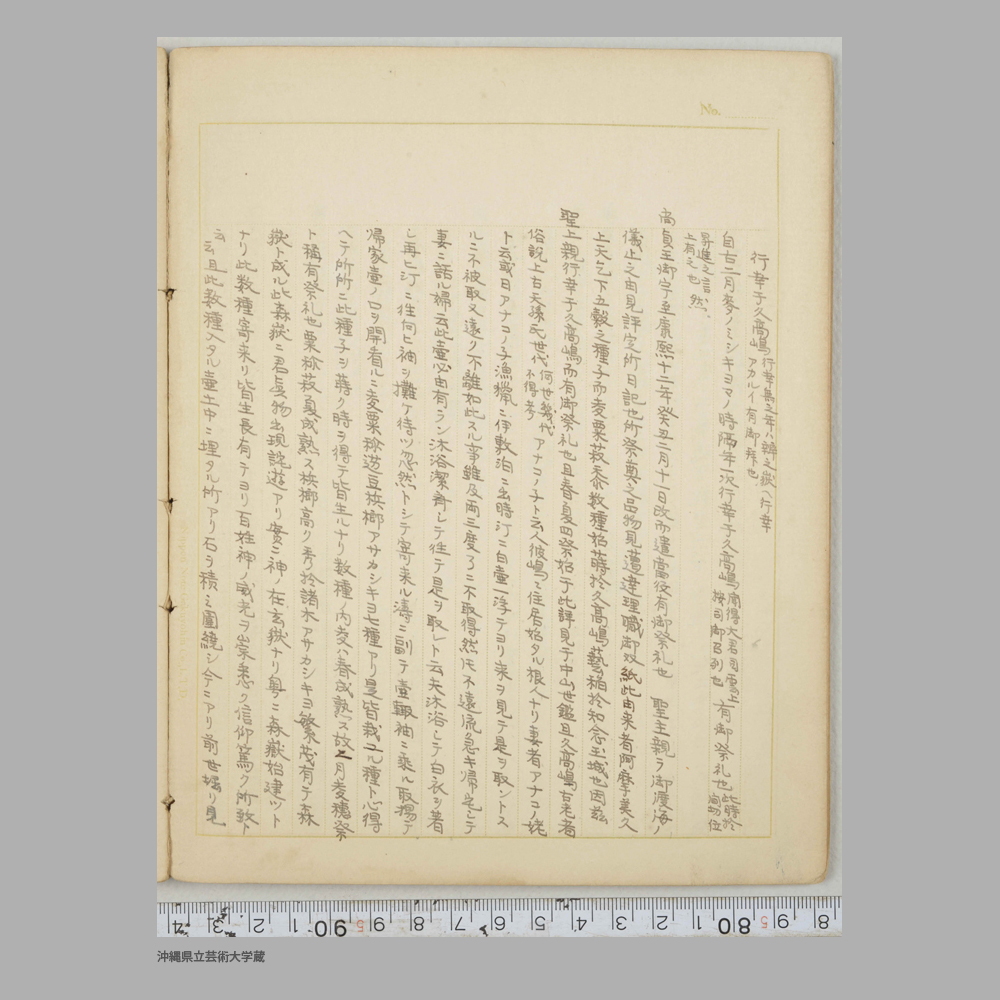 No.
行幸于久高嶋 行幸爲之年ハ辨之嶽ヘ行幸
アカルイ有御拜也
自古二月麥ノミシキヨマノ時隔年一次行幸于久高嶋 聞得大君司雲上
按司御召列也 有御祭礼也 此時於
向功位
昇進之言
上有之也 然、
尚貞王御宇至康熙十二年癸丑二月十一日改而遣當役有御祭礼也 聖主親ラ御渡海ノ
儀止之由見評定所日記也所祭奠之品物見遣達理職御双紙此由来者阿摩美久
上天乞下五穀之種子而麦粟菽黍数種始蒔於久高嶋藝稲於知念玉城也因茲
聖上親行幸于久高嶋而有御祭礼也且春夏四祭始于此詳見于中山世鑑且久高嶋古老者
俗説上古天孫氏世代 何世幾代
不得考 アナコノ子ト云人彼嶋ニ住居始タル根人ナリ妻者アナコノ姥
ト云或日アナコノ子漁獵ニ伊敷泊ニ出時汀ニ白壷一浮テヨリ来ヲ見テ是ヲ取ントス
ルニ不被取又遠ク不離如此スル事雖及両三度了ニ不取得然ドモ不遠流急キ帰宅シテ
妻ニ話ル婦云此壷必由有ラン沐浴潔斎シテ往テ是ヲ取レト云夫沐浴シテ白衣ヲ着
シ再ヒ汀ニ往向ヒ袖ヲ攤ケ待ツ忽然トシテ寄来ル濤ニ副テ壷輙袖ニ乘ル取揚テ
帰家壷ノ口ヲ開看ルニ麦粟稌逆豆梹榔アサカシキヨ七種アリ是皆栽ユル種ト心得
ヘテ所所ニ此種子ヲ蒔ク時ヲ得テ皆生ルナリ数種ノ内麦ハ春成熟ス故二月麦穂祭
ト稱有祭礼也粟稌菽夏成熟ス梹榔高ク秀於諸木アサカシキヨ繁茂有テ森
嶽ト成ル此森嶽ニ君真物出現託遊アリ實ニ神ノ在玄嶽ナリ粤ニ森嶽始建ツト
ナリ此数種寄来リ皆生長有テヨリ百姓神ノ威光ヲ崇悉ク信仰篤ク所致ト
云
云且此数種入タル壷土中ニ埋タル所アリ石ヲ積ミ圍繞シ今ニアリ前世堀リ見
沖縄県立芸術大学蔵